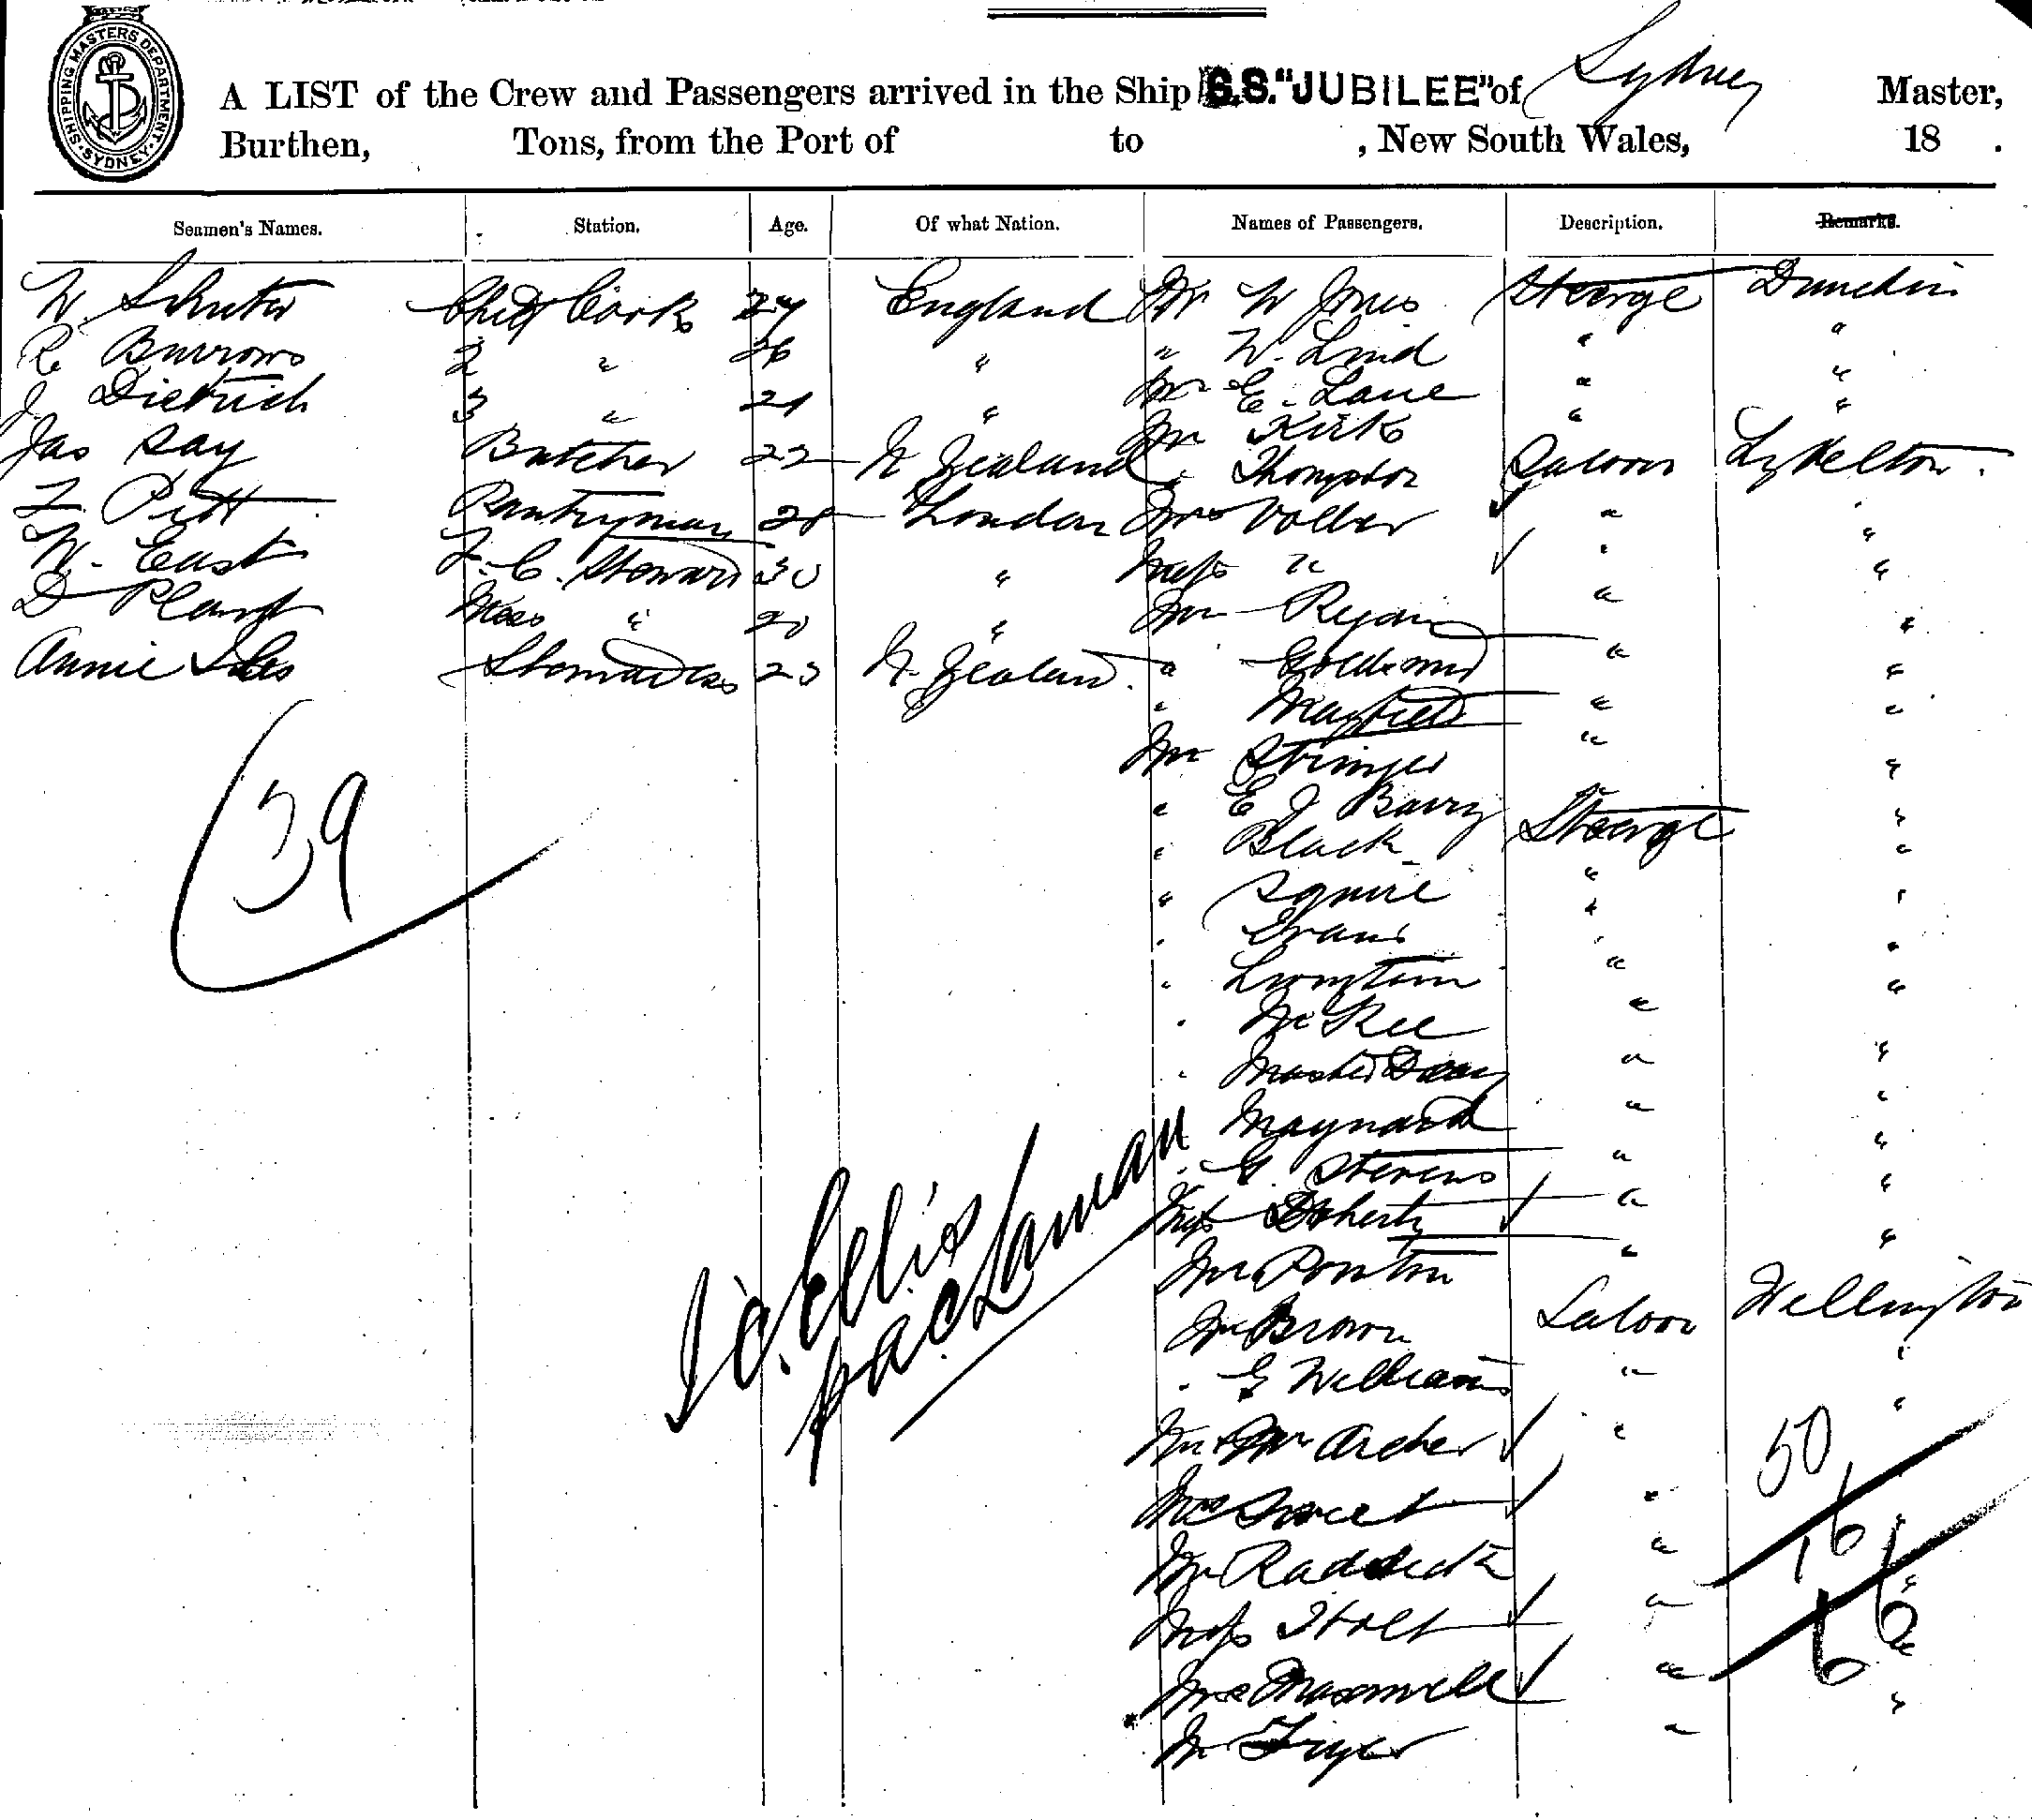 SHIPPING MASTERS DEPARTMENT · SYDNEY ·
A LIST of the Crew and Passengers arrived in the Ship S.S. "JUBILEE" of Sydney Master,
Burthen, Tons, from the Port of to , New South Wales, 18 .
Seamen's Names. Station. Age. Of what Nation. Names of Passengers. Description. Remarks.
W. Chief Cook England Mr W Jones Steerge Dunedin
R. Burrows 2 " 26 " " W. Lind " "
J. Dietrich 3 " 21 " Mr E. Lane " "
Jas Day Butcher 22 N Zealand Mr Kirk " "
Pitt Pantryman 28 London " Thompson Saloon Lyttelton.
W. East F. C. Steward 30 " Mrs " "
D Plant Mess " 20 " Miss " " "
Annie Stewardess 23 N. Zealand Mr Ryan " "
" " "
" Mayfield " "
Mr Stringer " "
" E J Barry Steerge "
" Black " "
39
" Squire " "
" Evans " "
" " "
" McKee " "
" Master " "
Maynard " "
" G. Stevens " "
Miss Doherty " "
Mr Ponton " "
Mr Brown Saloon Wellington
" G Williams " "
Mr & Mrs Archer " "
50
Mrs Sweet " "
16
Mr " "
Miss Holt " "
66
Mrs Maxwell " "
Mr Fryer "
J C. Ellis
pac Laman